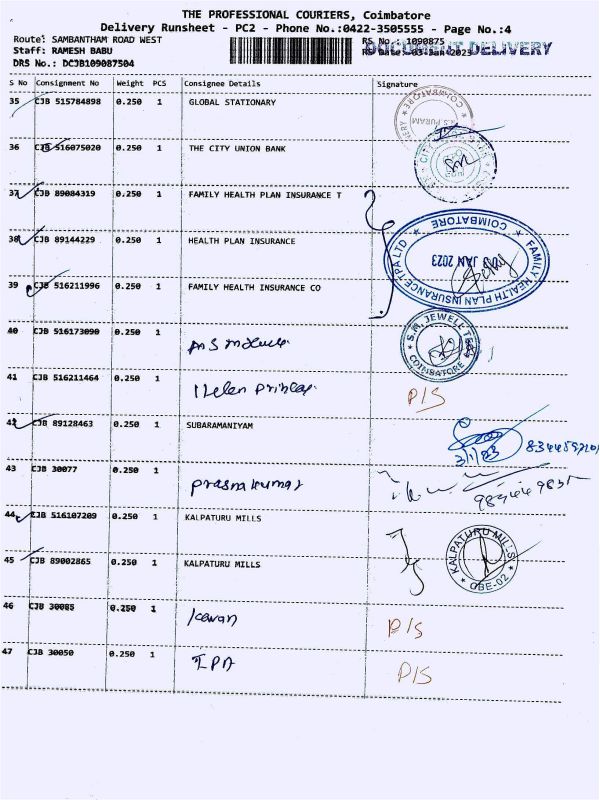 THE PROFESSIONAL COURIERS, Coimbatore
Delivery Runsheet - PC2 - Phone No.:0422-3505555 - Page No.:4
Route: SAMBANTHAM ROAD WEST
RS No.: 1090875
DOCUMENT DELIVERY
Staff: RAMESH BABU
RS Date: 03-Jan-2023
DRS No.: DCJB109087504
S No Consignment No Weight PCS Consignee Details Signature
35 CJB 515784898 0.250 1 GLOBAL STATIONARY
COIMBATORE
R.S.PURAM
36 CJB 516075020 0.250 1 THE CITY UNION BANK
CITY
37 CJB 89084319 0.250 1 FAMILY HEALTH PLAN INSURANCE T
38 CJB 89144229 0.250 1 HEALTH PLAN INSURANCE
FAMILY HEALTH PLAN INSURANCE TPA LTD
COIMBATORE
JAN 2023
39 CJB 516211996 0.250 1 FAMILY HEALTH INSURANCE CO
40 CJB 516173090 0.250 1
S.M. JEWELL TECH
COIMBATORE
41 CJB 516211464 0.250 1 Helen P/S
42 CJB 89128463 0.250 1 SUBARAMANIYAM
3/1/23
43 CJB 30077 0.250 1 prasnakumar
44 CJB 516107209 0.250 1 KALPATURU MILLS
KALPATURU MILLS
CBE-02
45 CJB 89002865 0.250 1 KALPATURU MILLS
46 CJB 30085 0.250 1 P/S
47 CJB 30050 0.250 1 IPA P/S